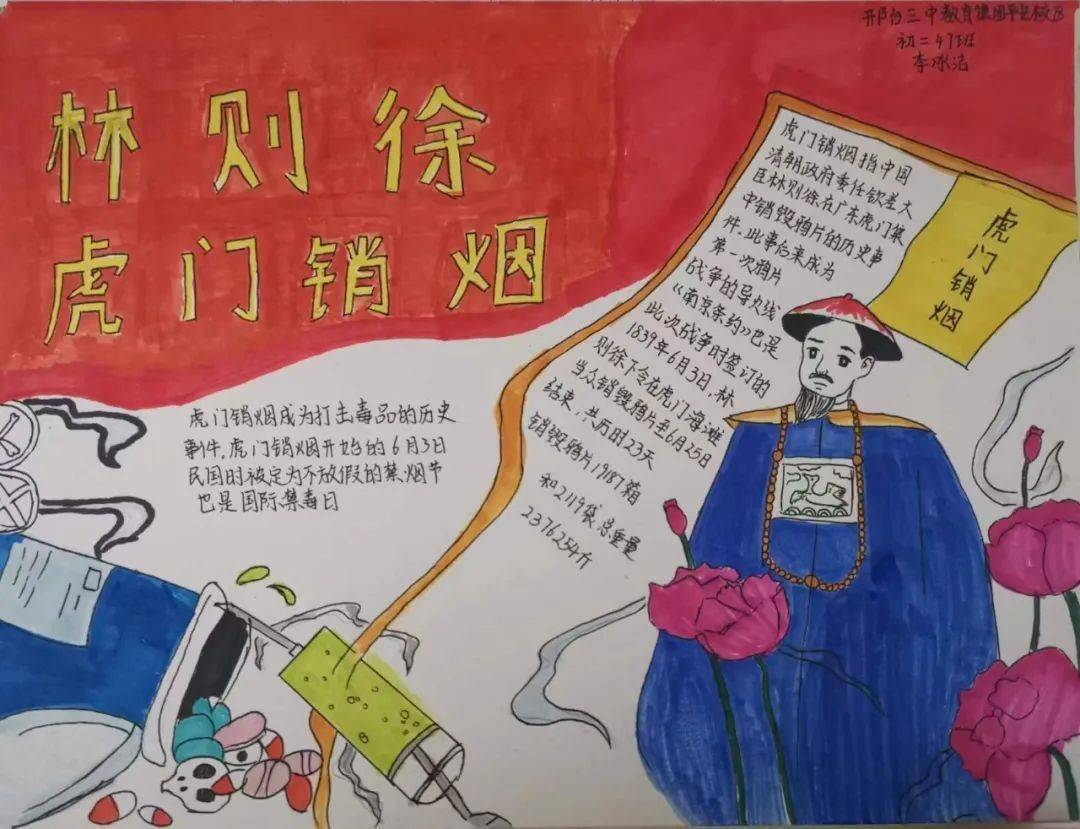 林则徐
虎门销烟
邢台三中教育集团
初二47班
李冰洁
虎门销烟指中国
清朝政府委任钦差大
臣林则徐在广东虎门集
中销毁鸦片的历史事
件.此事后来成为
第一次鸦片
战争的导火线
《南京条约》也是
此次战争时签订的
1839年6月3日,林
则徐下令在虎门海滩
当众销毁鸦片至6月25日
结束,共历时23天
销毁鸦片19187箱
和2119袋,总重量
2376254斤
虎门销烟
虎门销烟成为打击毒品的历史
事件.虎门销烟开始的6月3日
民国时被定为不放假的禁烟节
也是国际集毒日